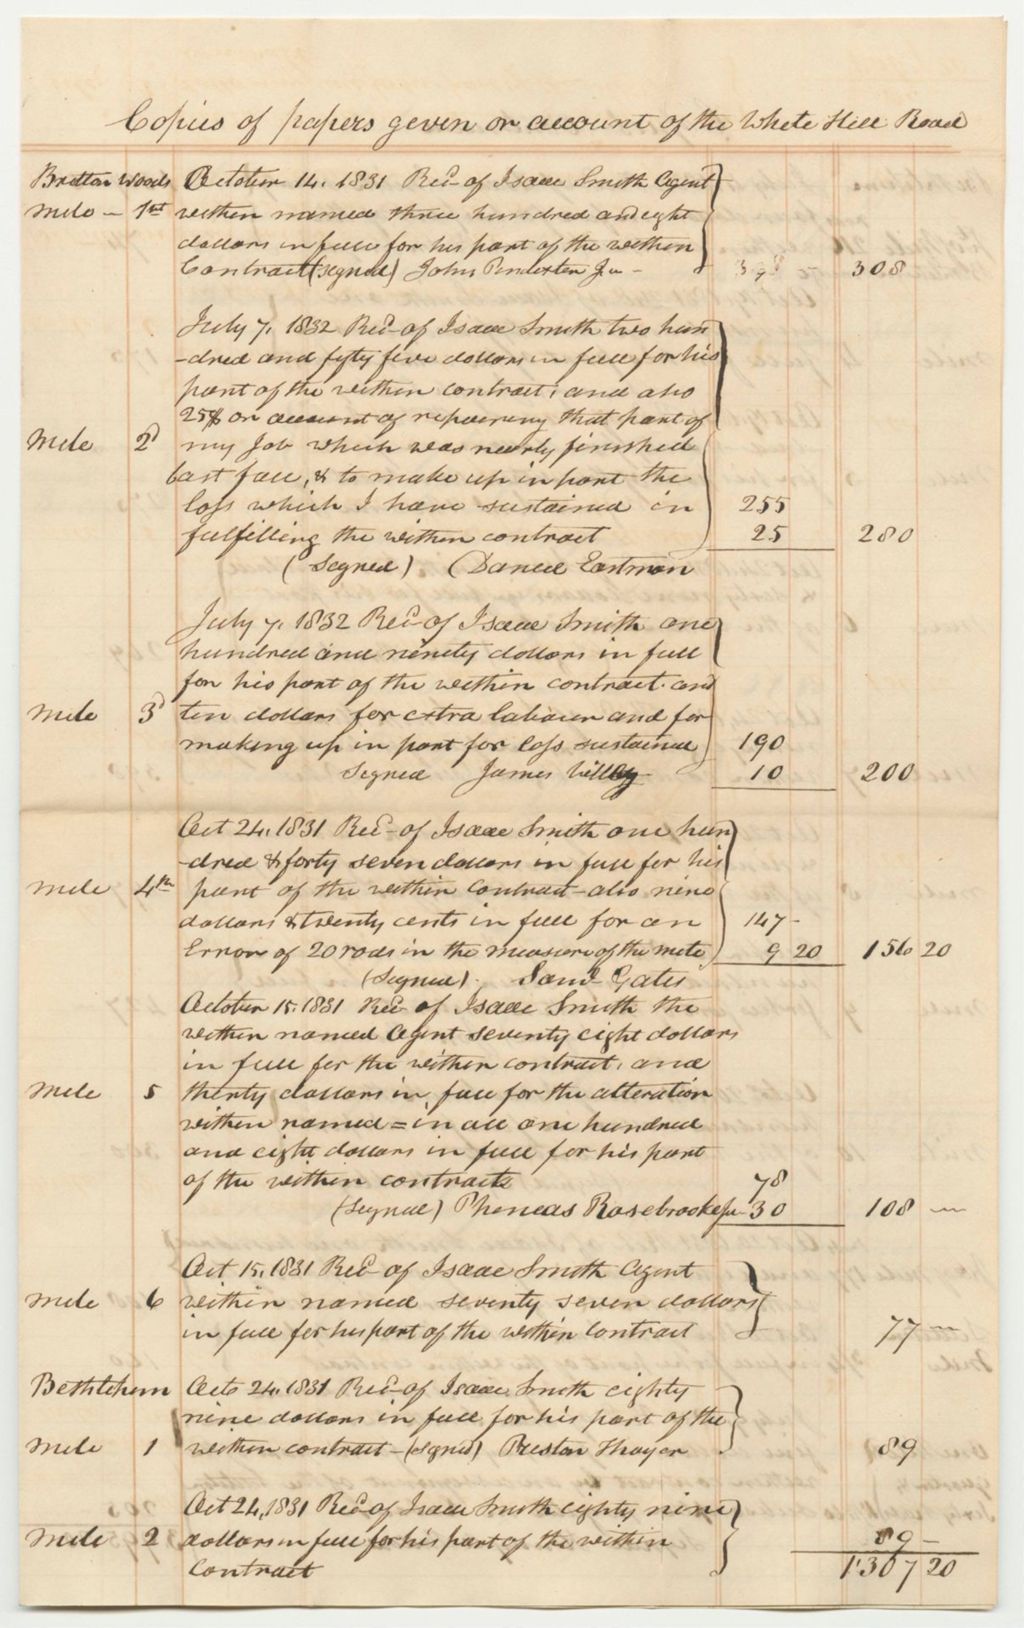 Copies of papers given on account of the White Hill Road
Bretton Woods October 14. 1831 Rec'd of Isaac Smith Agent
Mile - 1st within named three hundred and eight
dollars in full for his part of the within
Contract (signed) John Pendexter Jr - 308 308
July 7, 1832 Rec'd of Isaac Smith two hun
-dred and fifty five dollars in full for his
part of the within contract, and also
25$ on account of repairing that part of
Mile 2d my Job which was nearly finished
last fall, & to make up in part the
loss which I have sustained in 255
fulfilling the within contract 25 280
(Signed) Daniel Eastman
July 7. 1832 Rec'd of Isaac Smith one
hundred and ninety dollars in full
for his part of the within contract and
Mile 3d ten dollars for extra labour and for
making up in part for loss sustained 190
Signed James Willey 10 200
Oct 24, 1831 Rec'd of Isaac Smith one hun
-dred & forty seven dollars in full for his
Mile 4th part of the within contract - also nine
dollars & twenty cents in full for an 147 -
Error of 20 rods in the measure of the mile 9 20 156 20
(Signed). Saml Gates
October 15. 1831 Rec'd of Isaac Smith the
within named Agent seventy eight dollars
in full for the within contract, and
Mile 5 thirty dollars in full for the alteration
within named = in all one hundred
and eight dollars in full for his part
of the within contracts 78
(Signed) Phineas Rosebrooke Jr 30 108 -
Oct 15, 1831 Rec'd of Isaac Smith Agent
Mile 6 within named seventy seven dollars
in full for his part of the within Contract 77 -
Bethlehem Oct 24. 1831 Rec'd of Isaac Smith eighty
nine dollars in full for his part of the
Mile 1 within contract - (signed) Preston Thayer 89
Oct 24, 1831 Rec'd of Isaac Smith eighty nine
Mile 2 dollars in full for his part of the within 89 -
Contract 1307 20